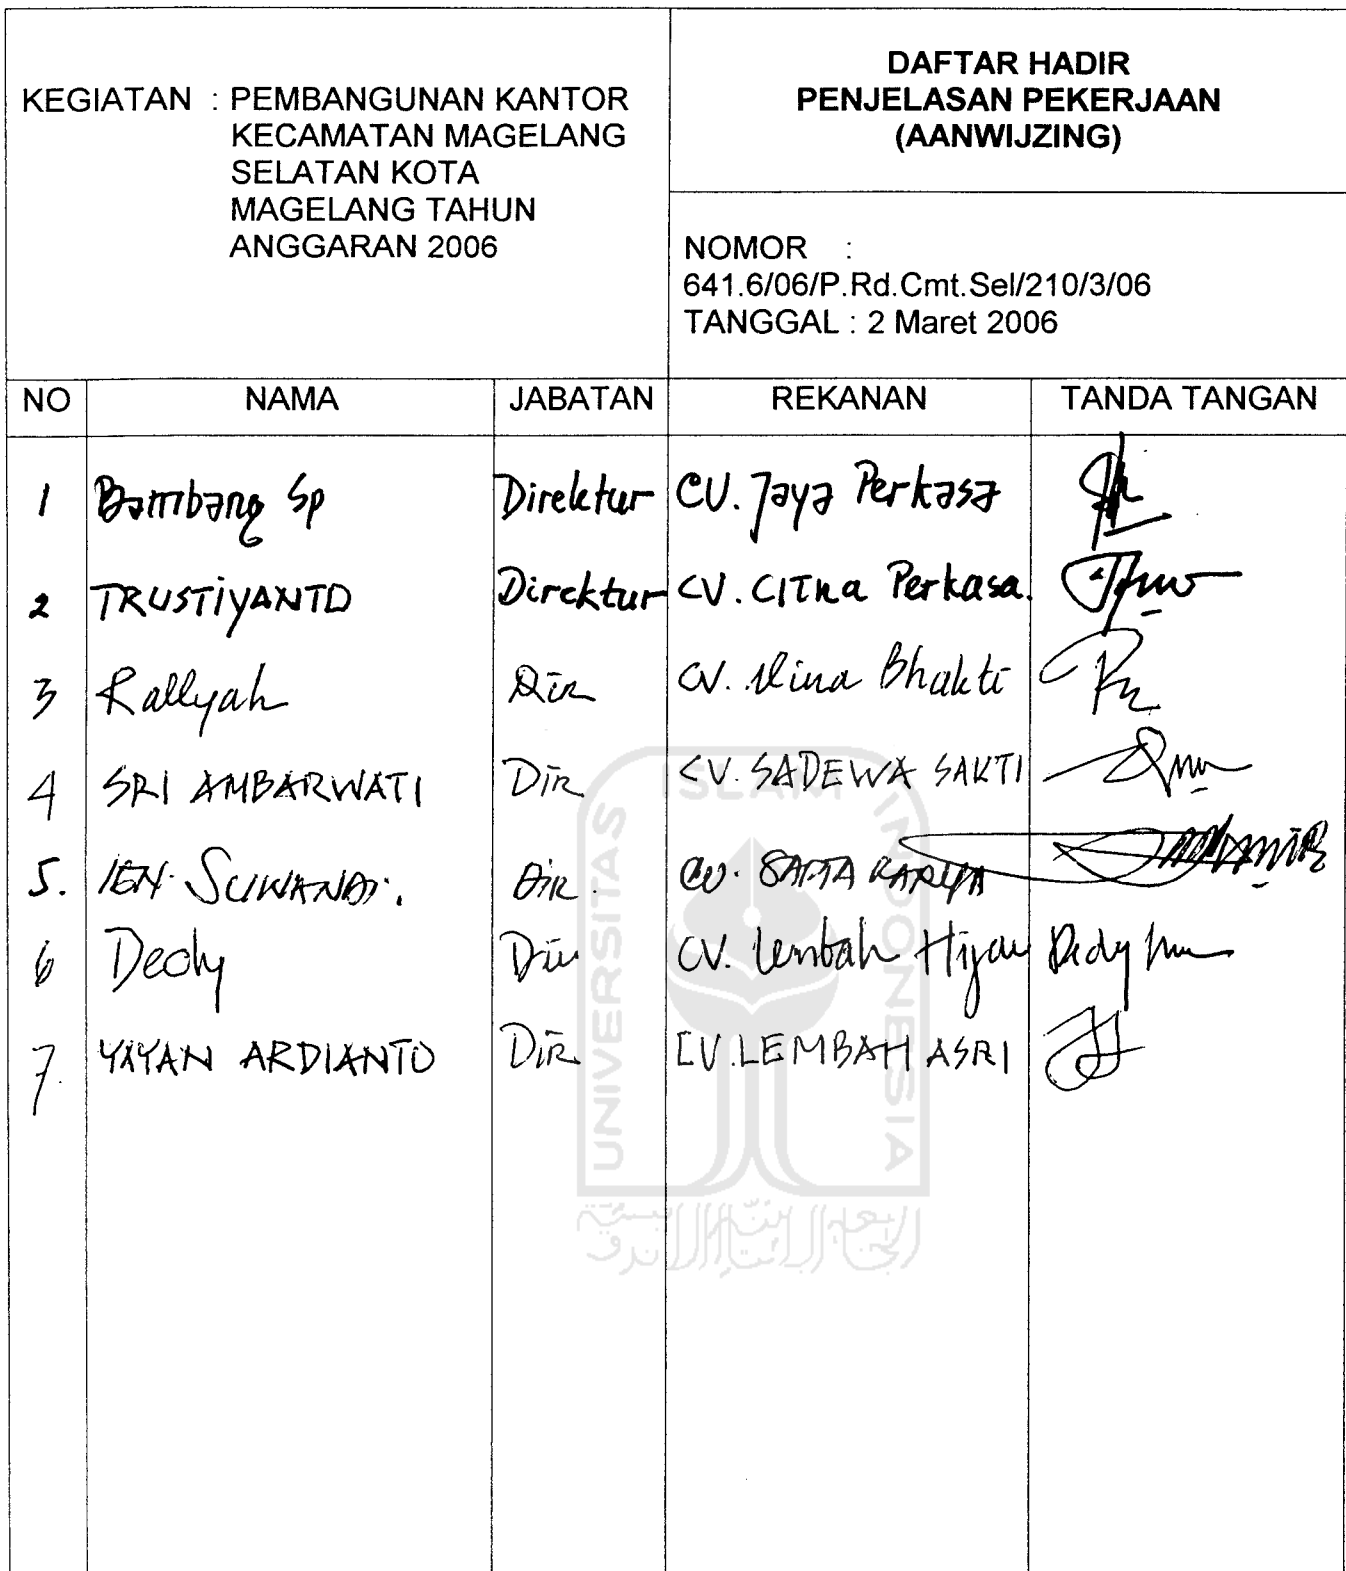 KEGIATAN : PEMBANGUNAN KANTOR
KECAMATAN MAGELANG
SELATAN KOTA
MAGELANG TAHUN
ANGGARAN 2006
DAFTAR HADIR
PENJELASAN PEKERJAAN
(AANWIJZING)
NOMOR :
641.6/06/P.Rd.Cmt.Sel/210/3/06
TANGGAL : 2 Maret 2006
NO NAMA JABATAN REKANAN TANDA TANGAN
1 Bambang Sp Direktur CV. Jaya Perkasa
2 TRUSTIYANTO Direktur CV. CITRA Perkasa.
3 Rallyah Dir CV. Bhakti
4 SRI AMBARWATI Dir CV. SADEWA SAKTI
5. SUWANDI. Dir. CV. KARYA
6 Dedy Dir CV. Lembah Hijau Dedy
7. YAYAN ARDIANTO Dir CV. LEMBAH ASRI
UNIVERSITAS ISLAM INDONESIA